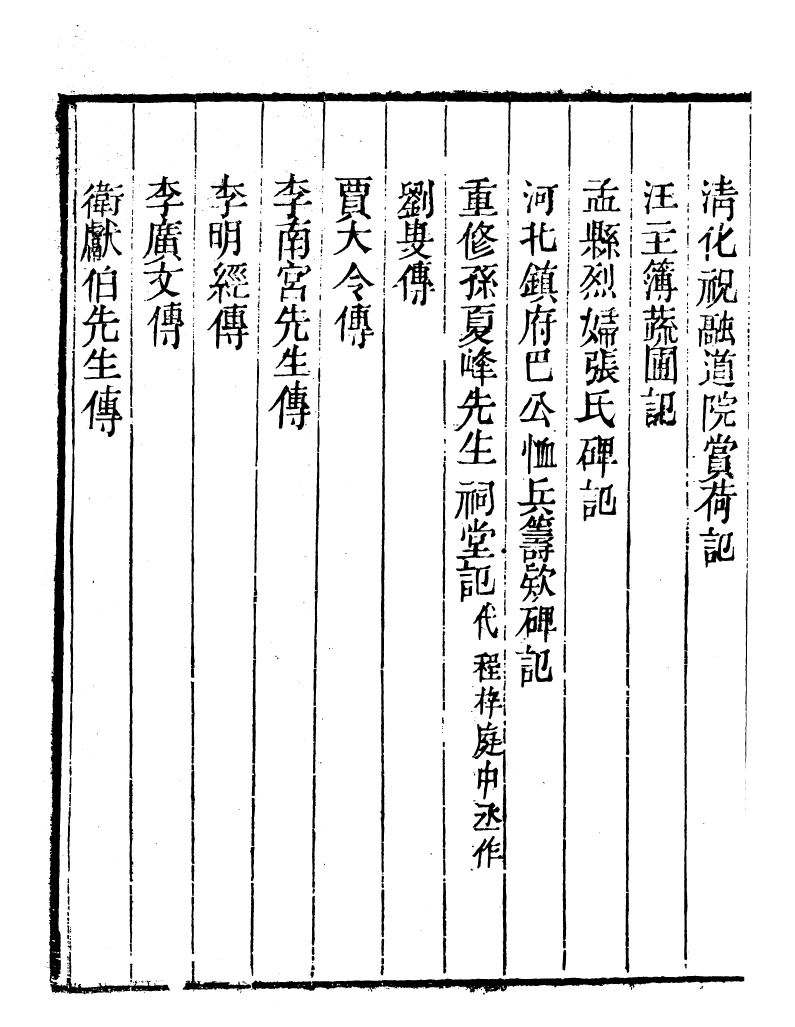 清化祝融道院賞荷記
汪主簿蔬圃記
孟縣烈婦張氏碑記
河北鎮府巴公恤兵籌欵碑記
重修孫夏峰先生祠堂記代程梓庭中丞作
劉叟傳
賈大令傳
李南宮先生傳
李明經傳
李廣文傳
衛獻伯先生傳